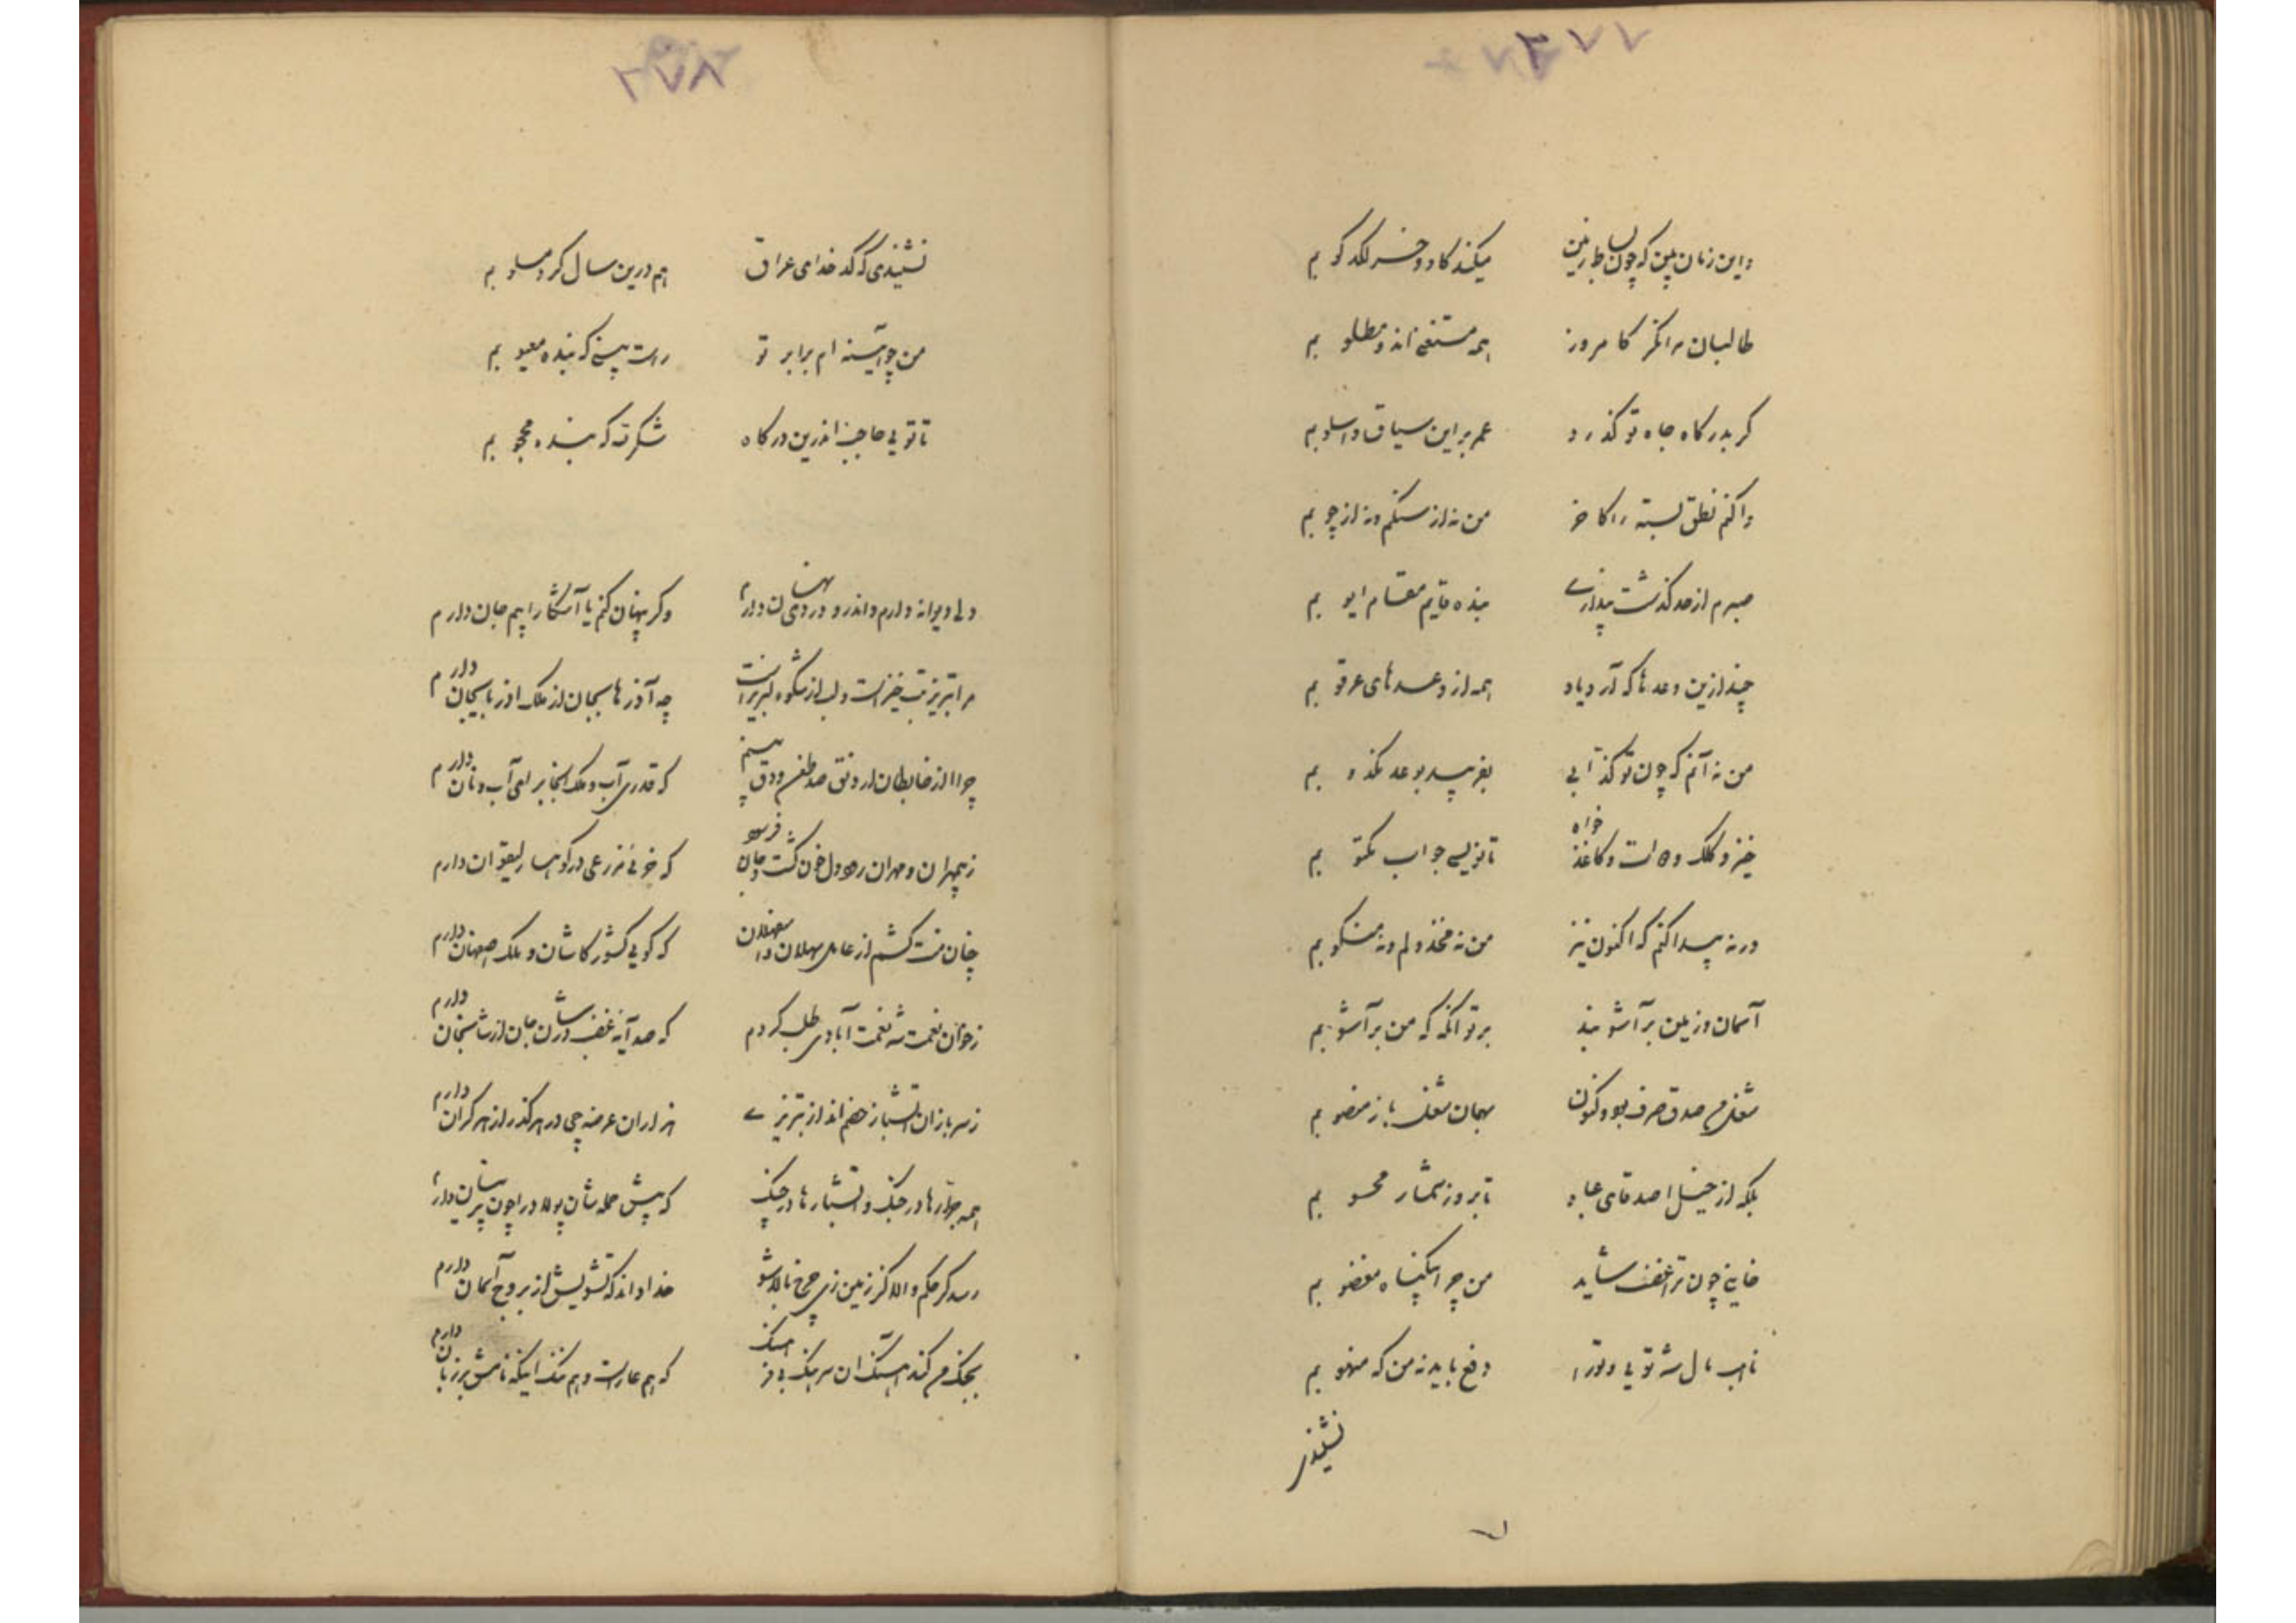 واین زمان بین که چون بساط زمین میکند گاو و خر لگد کوبم
طالبان مرا نگر کامروز همه مستغنی اند و مطلوبم
گر بدرگاه جاه تو گذرد عمر بر این سیاق و اسلوبم
واکنم نطق بسته را کاخر من نه از سنگم و نه از چوبم
صبرم از حد گذشت پنداری بنده قایم مقام ایوبم
چند ازین وعدها که آرد یاد همه از وعدهای عرقوبم
من نه آنم که چون تو کذابی بفریبد بوعد مکذوبم
خیز و کلک و دوات و کاغذ خواه تا نویسی جواب مکتوبم
ورنه پیدا کنم که اکنون نیز من نه مخذولم و نه منکوبم
آسمان و زمین برآشوبند بر تو آنگه که من برآشوبم
شغلم صدق صرف بود و کنون بهمان شغل باز منصوبم
بلکه از خیل اصدقای عباد تا بروز شمار محسوبم
خاینی چون ترا غضب شاید من چرا بیگناه مغضوبم
ناهب مال شه تویی و ترا دفع باید نه من که منهوبم
نشنیدی
۷
نشنیدی که کدخدای عراق هم درین سال کرد مسلوبم
من چو آیینه ام برابر تو راست بینی که بنده معیوبم
تا تویی حاجب اندرین درگاه شکر آن که بنده محجوبم
دلی دیوانه دارم واندرو دردی نهان دارم وگر پنهان کنم یا آشکارا بیم جان دارم
مرا تبریز تب خیز است و لب از شکوه لبریز است چه آذرها بجان از ملک آذربایجان دارم
چرا از ضابطان ارونق صد طعن و دق بینم که قدری آب و ملک آنجا برای آب و نان دارم
ز مهران و مهران رود دل خون گشت و جان فرسود که خونی مزرعی در کوهسار لیقوان دارم
چنان منت کشم از عامل سهلان و اسفهلان که گویی کشور کاشان و ملک اصفهان دارم
ز خوان نعمت شه نعمت آبادی طلب کردم که صد آیه غضب در شان جان از شاسنجان دارم
ز سربازان آتشباز خصم انداز تبریزی هزاران عرضه چی در هر گذر از هر کران دارم
همه جرارها در جنگ و آتشبارها در چنگ که پیش حمله شان پولاد را چون پرنیان دارم
رسد گر حکم والا کز زمین زی چرخ بالا شو خدا داند که تشویش از بروج آسمان دارم
بجنگ من کند آهنگ آن سرهنگ بی فرهنگ که هم عار است و هم ننگ اینکه نامش بر زبان دارم